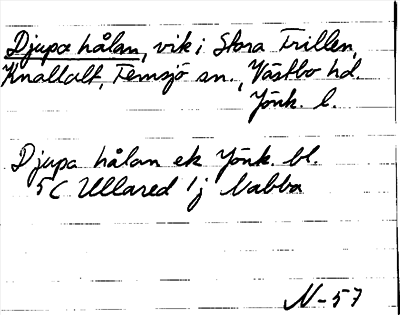 Djupa hålan, vik i Stora Trillen,
Knallalt, Femsjö sn., Västbo hd.
Jönk. l.
Djupa hålan ek Jönk. bl.
5C Ullared 1j Nabba
N-57